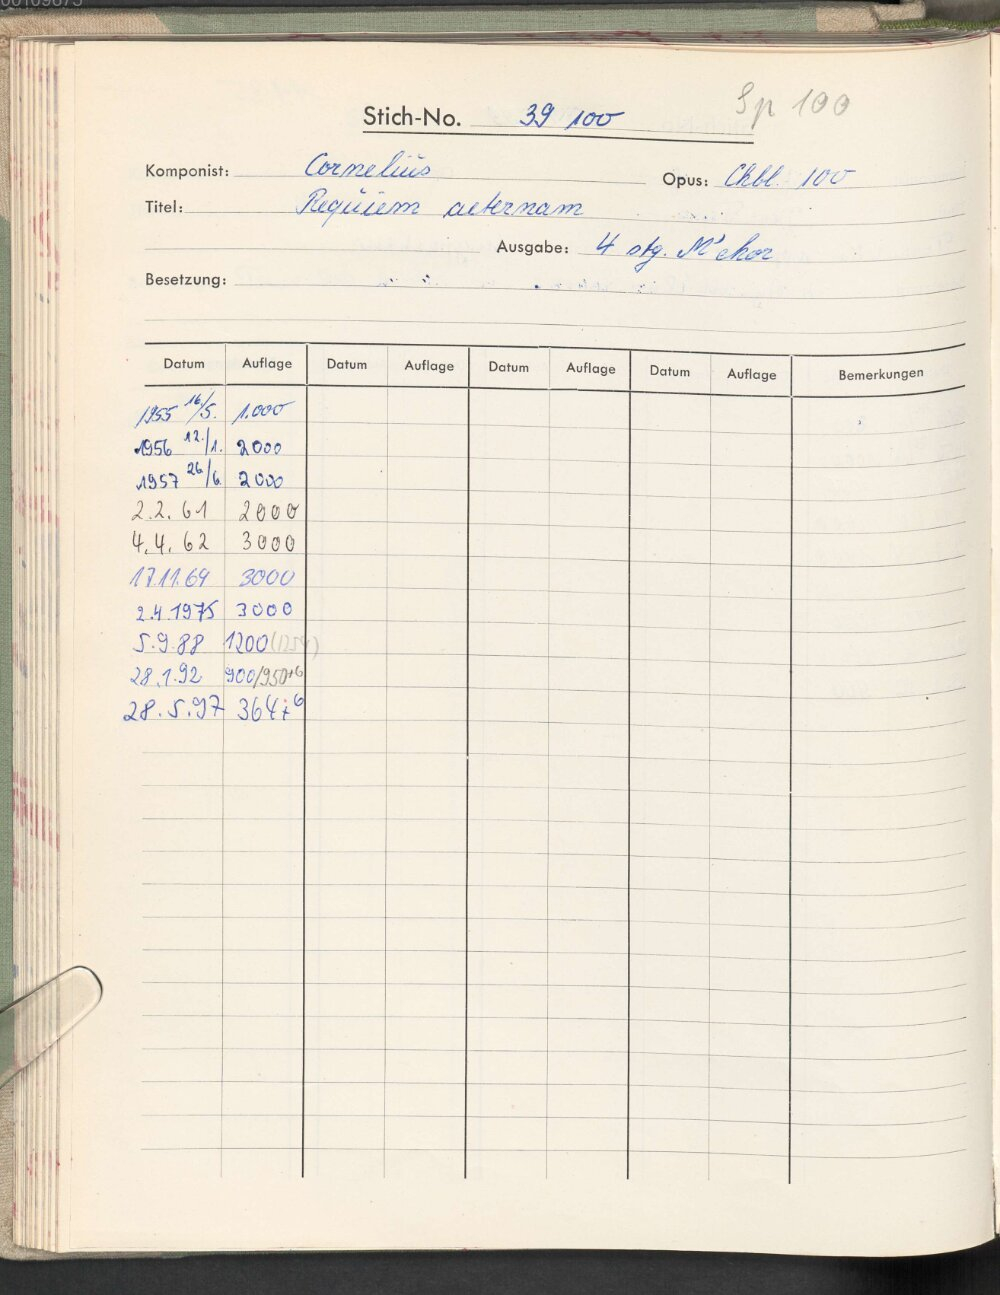 Sp 100
Stich-No. 39 100
Komponist: Cornelius Opus: Chbl. 100
Titel: Requiem aeternam
Ausgabe: 4 stg. M'chor
Besetzung:
Datum Auflage Datum Auflage Datum Auflage Datum Auflage Bemerkungen
1955 16/5. 1.000
1956 12./1. 2000
1957 26/6. 2000
2.2.61 2000
4.4.62 3000
17.11.69 3000
2.4.1975 3000
5.9.88 1200
28.1.92 900/950+6
28.5.97 364+6